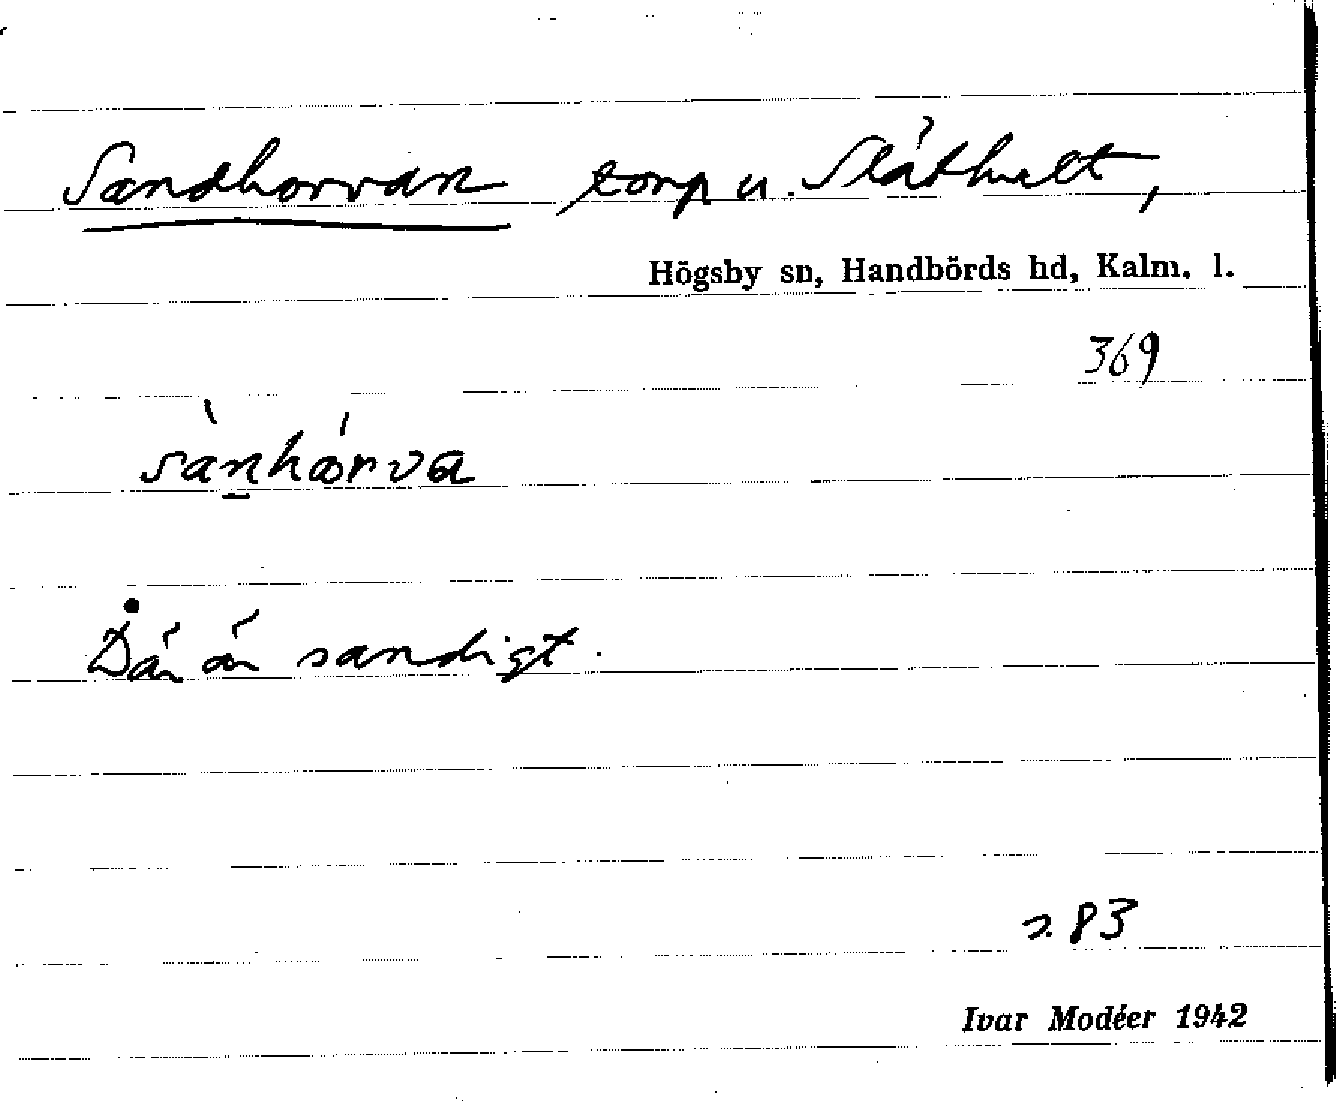 Sandhorvan torp u. Slåthult,
Högsby sn, Handbörds hd, Kalm. l.
369
sànhórva
Där är sandigt.
s. 83
Ivar Modéer 1942